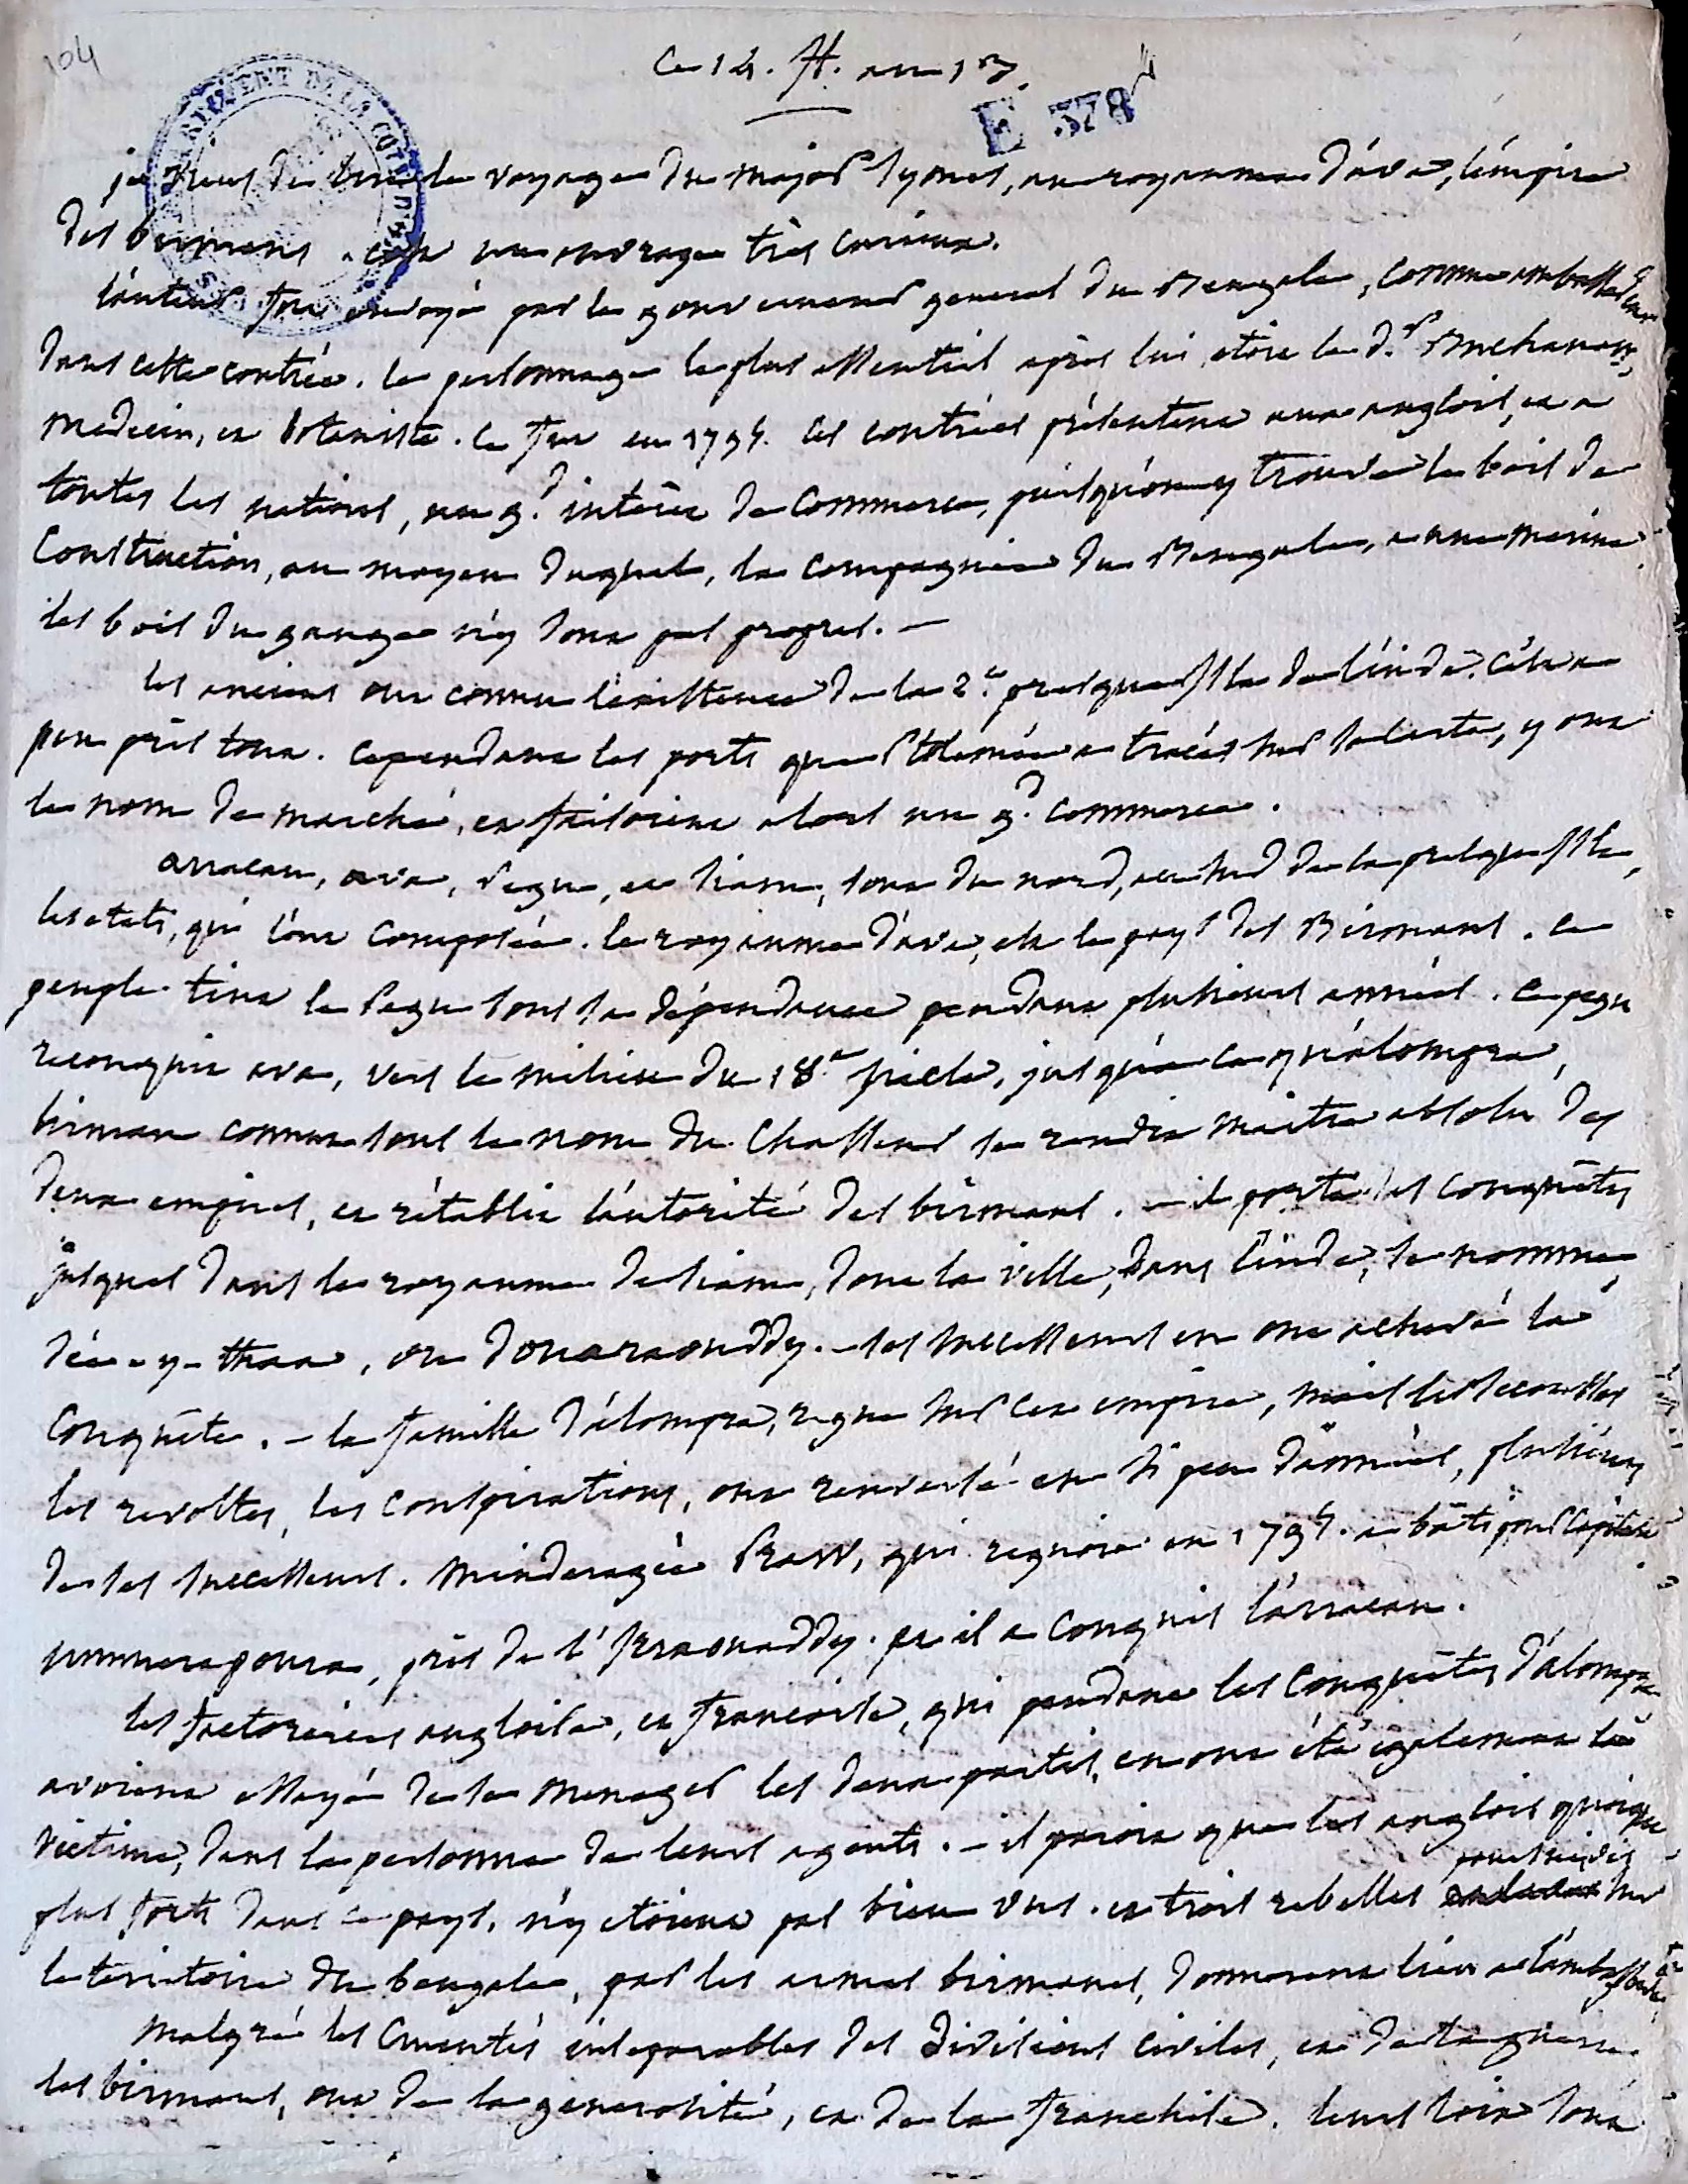 104
Ce 14. fl. an 13.
E 378
je viens de lire le voyage du major Symes, au royaume d'ava, l'empire
des birmans. c'est un ouvrage très curieux.
l'auteur fut envoyé par le gouverneur general du Bengale, comme ambassadeur
dans cette contrée. le personnage le plus essentiel après lui, étoit le d.r Buchanan,
medecin, et botaniste. ce fut en 1795. ces contrées présentent aux anglois, et a
toutes les nations, un g.d intérêt de commerce, puisqu'on y trouve le bois de
construction, au moyen duquel, la compagnie du Bengale, a une marine
les bois du gange n'y sont pas propres. —
les anciens ont connu l'existence de la 2.e presque isle de l'inde. c'est a
peu près tout. cependant les ports que Ptolémée a tracés sur sa carte, y ont
le nom de marché, et faisoient alors un g.d commerce.
arracan, ava, Pegu, et Siam, sont du nord, au sud de la presque isle,
les etats, qui l'ont composée. le royaume d'ava, est le pays des Birmans. ce
peuple tint le Pegu sous sa dépendance pendant plusieurs années. ce pegu
reconquit ava, vers le milieu du 18.e siècle, jusqu'à ce qu'alompra,
birman connu sous le nom du chasseur se rendit maitre absolu des
deux empires, et rétablit l'autorité des birmans. — il porta ses conquêtes
jusques dans le royaume de siam, dont la ville, dans l'inde, se nomme
dée-y-thaa, ou douaraouddy. — ses successeurs en ont achevé la
conquête. — la famille d'alompra, regne sur cet empire, mais les secousses
les revoltes, les conspirations, ont renversé en si peu d'années, plusieurs
de ses successeurs. Minderagée Praw, qui regnoit en 1795. a bâti pour capitale
ummerapoura, près de l'irraouaddy. et il a conquis l'arracan.
les factoreries angloise, et françoise, qui pendant les conquêtes d'alompra
avoient essayé de se menager les deux partis, en ont été également la
victime, dans la personne de leurs agents. — il paroit que les anglois quoique
plus forts dans ce pays, n'y étoient pas bien vus. et trois rebelles poursuivis sur
le territoire du bengale, par les armes birmanes, donnerent lieu a l'ambassade
malgré les cruautés inseparables des divisions civiles, et de la guerre
les birmans, ont de la generosité, et de la franchise. leurs loix sont